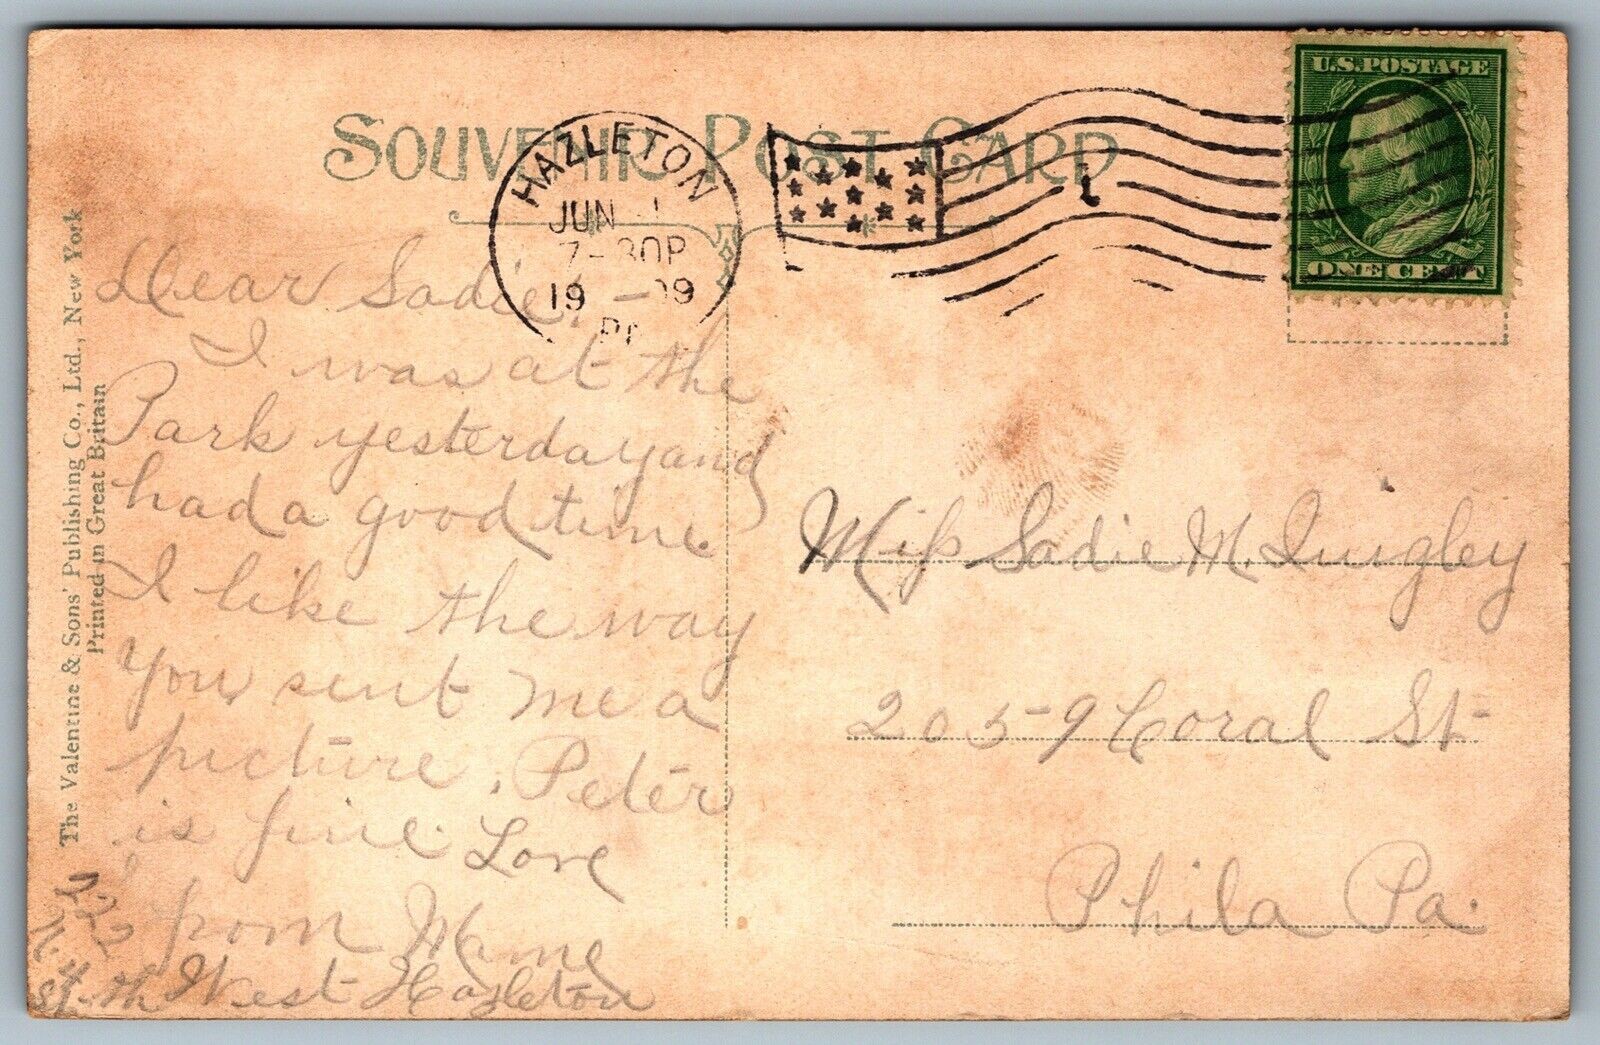 SOUVENIR POST CARD
HAZLETON
JUN
7-30P
19 09
PA
U.S. POSTAGE
ONE CENT
1
The Valentine & Sons' Publishing Co., Ltd., New York
Printed in Great Britain
Dear Sadie,
I was at the
Park yesterday and
had a good time.
I like the way
you sent me a
picture. Peter
is fine. Love
from Mame
West Hazleton
Miss Sadie M. Quigley
2059 Coral St
Phila Pa.